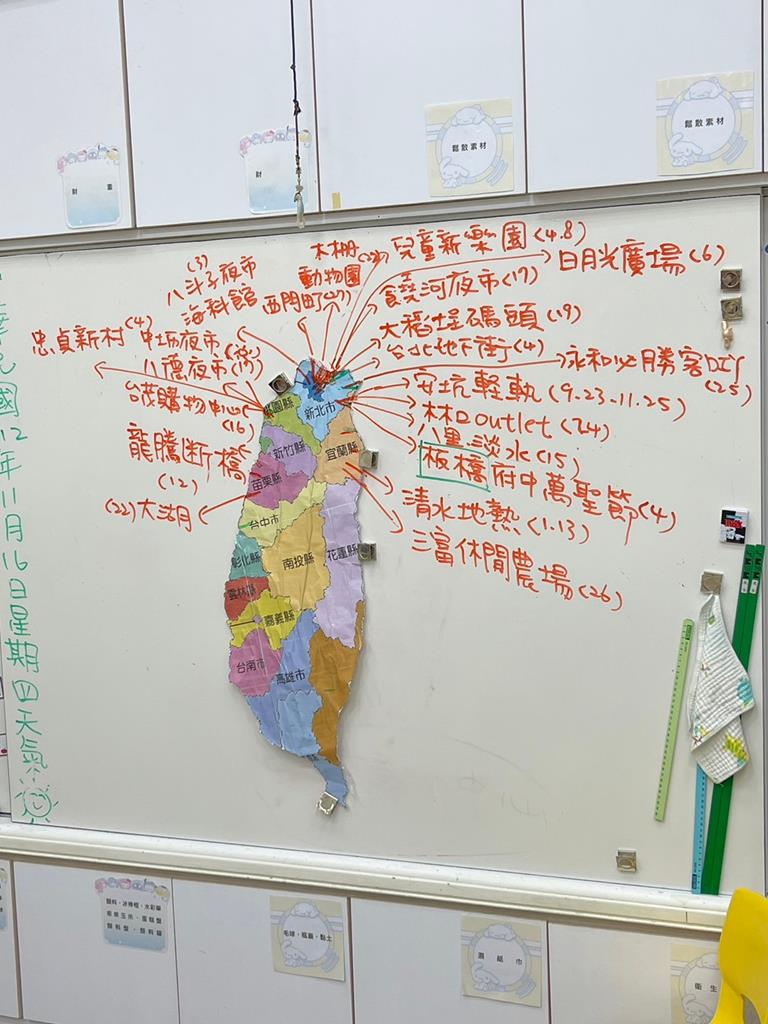 財
財
鬆散素材
鬆散素材
國112年11月16日星期四天氣:
(3)
八斗子夜市
海科館
木柵
動物園
西門町(27)
兒童新樂園(4.8)
日月光廣場(6)
饒河夜市(17)
大稻埕碼頭(19)
台北地下街(4)
永和必勝客DIY
(25)
安坑輕軌(9.23.11.25)
林口outlet(7.24)
八里淡水(15)
板橋府中萬聖節(4)
清水地熱(1.13)
三富休閒農場(26)
忠貞新村(4)
中坜夜市
八德夜市(17)
台茂購物中心
(16)
龍騰断橋
(12)
(22)大湖
桃園縣
新北市
新竹縣
宜蘭縣
苗栗縣
台中市
彰化縣
南投縣
花蓮縣
雲林縣
嘉義縣
台南市
高雄市
顏料、冰棒棍、水彩筆
顏料盤、顏料罐
毛球、瓶蓋、黏土
濕紙巾
衛生